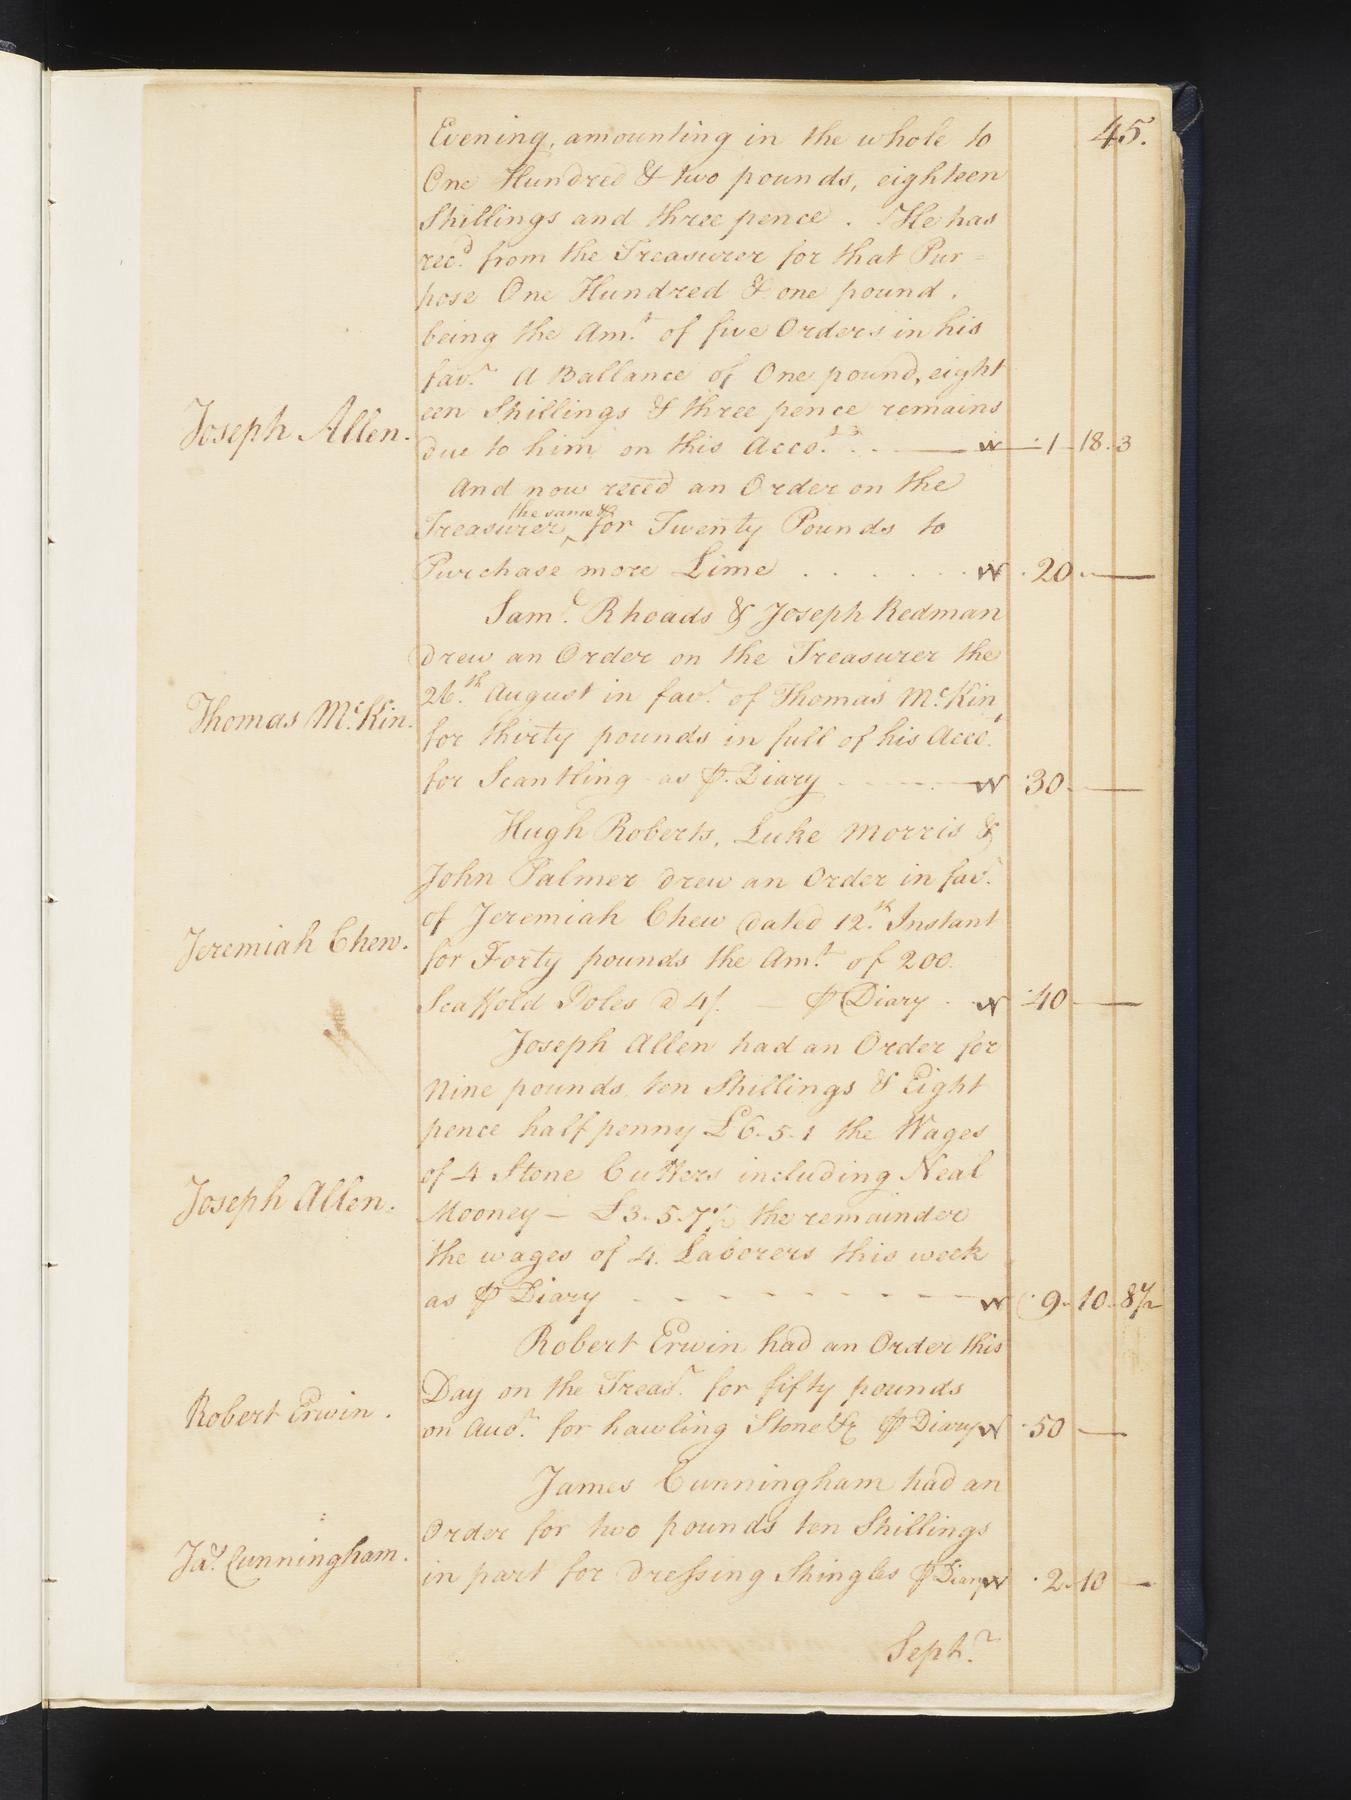 45.
Evening, amounting in the whole to
One Hundred & two pounds, eighteen
Shillings and three pence. He has
recd. from the Treasurer for that Pur=
pose One Hundred & one pound,
being the Amt. of five Orders in his
favr. A Ballance of One pound, eight
een Shillings & three pence remains
Joseph Allen. due to him on this Accot. . . — W 1 18 3
And now reced an Order on the
the same &
Treasurer ‸ for Twenty Pounds to
Purchase more Lime . . . . . . W . 20 . —
Saml. Rhoads & Joseph Redman
drew an Order on the Treasurer the
26.th August in favr. of Thomas McKin
Thomas McKin. for thirty pounds in full of his Accot.
for Scantling as ⅌ Diary - - - - W 30 . —
Hugh Roberts, Luke Morris &
John Palmer drew an Order in favr.
of Jeremiah Chew dated 12.th Instant
Jeremiah Chew. for Forty pounds the Amt. of 200
Scaffold Poles @ 4/. — ⅌ Diary . . W 40 —
Joseph Allen had an Order for
Nine pounds ten Shillings & Eight
pence halfpenny £6..5..1 the Wages
of 4 Stone Cutters including Neal
Joseph Allen. Mooney — £3..5..7½ the remainder
the wages of 4 Laborers this week
as ⅌ Diary - - - - - - - - W 9 10 8½
Robert Erwin had an Order this
Day on the Treasr. for fifty pounds
Robert Erwin. on Acco. for hawling Stone &c ⅌ Diary W 50 —
James Cunningham had an
Order for two pounds ten Shillings
Jas. Cunningham. in part for dressing Shingles ⅌ Diary W . 2 10 —
Septr.